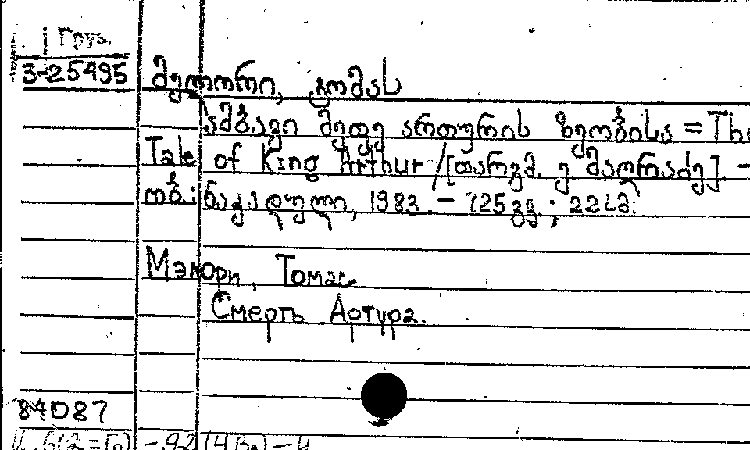 Груз.
3-25495 მელორი, ტომას
ამბავი მეფე ართურის ზეობისა = The
Tale of King Arthur / [თარგმ. ე მაღრაძე]. -
თბ.: ნაკადული, 1983. - 725 გვ.; 22 სმ.
Мэлори, Томас
Смерть Артура.
84087